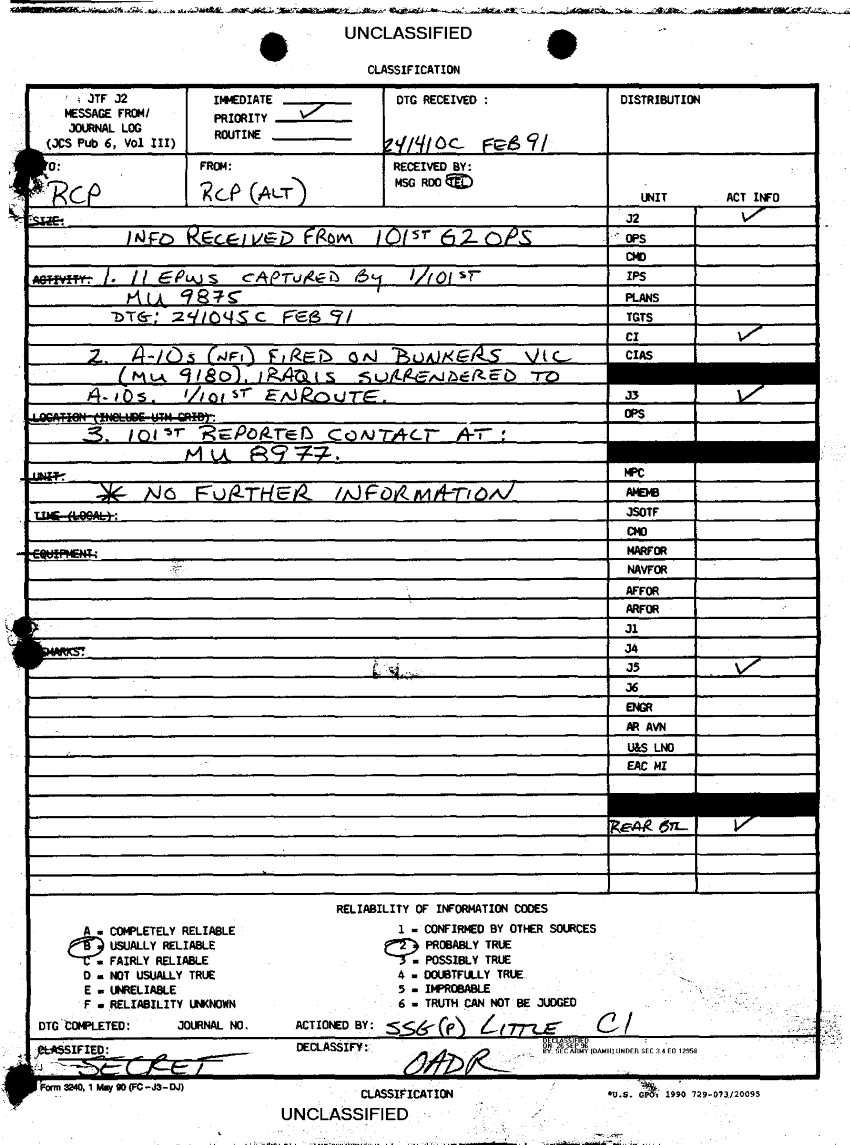 UNCLASSIFIED
CLASSIFICATION
JTF J2
MESSAGE FROM/
JOURNAL LOG
(JCS Pub 6, Vol III)
IMMEDIATE
PRIORITY ✓
ROUTINE
DTG RECEIVED :
241410C FEB 91
DISTRIBUTION
TO:
RCP
FROM:
RCP (ALT)
RECEIVED BY:
MSG RDO TEL
UNIT ACT INFO
SIZE:
INFO RECEIVED FROM 101ST G2 OPS
ACTIVITY: 1. 11 EPWS CAPTURED BY 1/101ST
MU 9875
DTG: 241045C FEB 91
2. A-10s (NFI) FIRED ON BUNKERS VIC
(MU 9180). IRAQIS SURRENDERED TO
A-10s. 1/101ST ENROUTE.
LOCATION (INCLUDE UTM GRID):
3. 101ST REPORTED CONTACT AT:
MU 8977.
UNIT:
* NO FURTHER INFORMATION
TIME (LOCAL):
EQUIPMENT:
REMARKS:
J2 ✓
OPS
CMD
IPS
PLANS
TGTS
CI ✓
CIAS
J3 ✓
OPS
MPC
AMEMB
JSOTF
CMO
MARFOR
NAVFOR
AFFOR
ARFOR
J1
J4
J5 ✓
J6
ENGR
AR AVN
U&S LNO
EAC MI
REAR BTL ✓
RELIABILITY OF INFORMATION CODES
A = COMPLETELY RELIABLE
B = USUALLY RELIABLE
C = FAIRLY RELIABLE
D = NOT USUALLY TRUE
E = UNRELIABLE
F = RELIABILITY UNKNOWN
1 = CONFIRMED BY OTHER SOURCES
2 = PROBABLY TRUE
3 = POSSIBLY TRUE
4 = DOUBTFULLY TRUE
5 = IMPROBABLE
6 = TRUTH CAN NOT BE JUDGED
DTG COMPLETED: JOURNAL NO. ACTIONED BY: SSG(P) LITTLE CI
CLASSIFIED:
SECRET
DECLASSIFY:
OADR
DECLASSIFIED
ON: 26 SEP 96
BY: SEC ARMY (DAMH) UNDER SEC 3.4 EO 12958
Form 3240, 1 May 90 (FC-J3-DJ)
CLASSIFICATION
*U.S. GPO: 1990 729-073/20095
UNCLASSIFIED